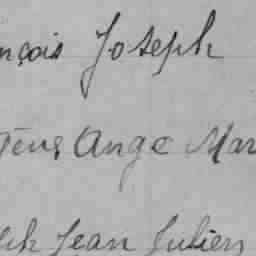 nçois Joseph
gène Ange Mar
ph Jean Julien